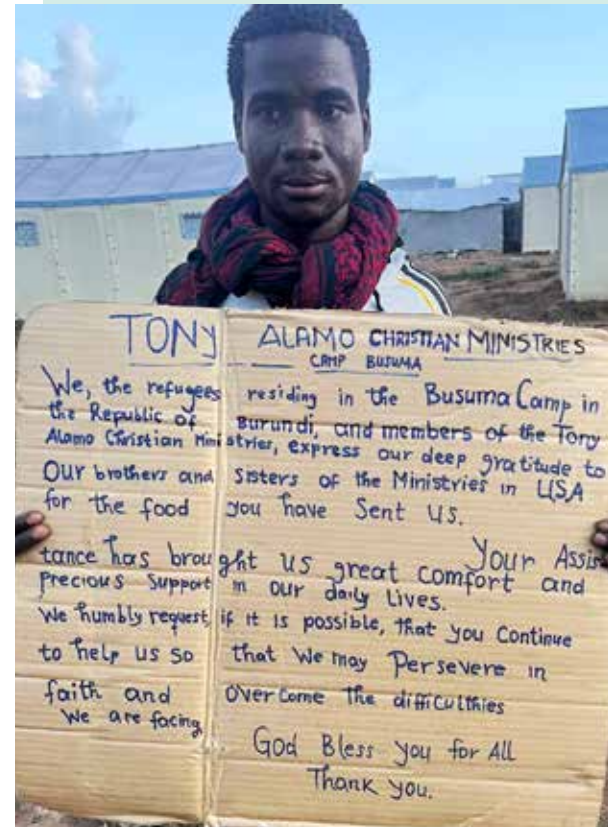 TONY ALAMO CHRISTIAN MINISTRIES
CAMP BUSUMA
We, the refugees residing in the Busuma Camp in
the Republic of Burundi, and members of the Tony
Alamo Christian Ministries, express our deep gratitude to
Our brothers and Sisters of the Ministries in USA
for the food you have Sent us.
Your Assis
tance has brought us great comfort and
Precious Support in our daily Lives.
We humbly request, if it is possible, that you Continue
to help us so that We may Persevere in
faith and overcome the difficulthies
We are facing
God Bless you for All
Thank you.